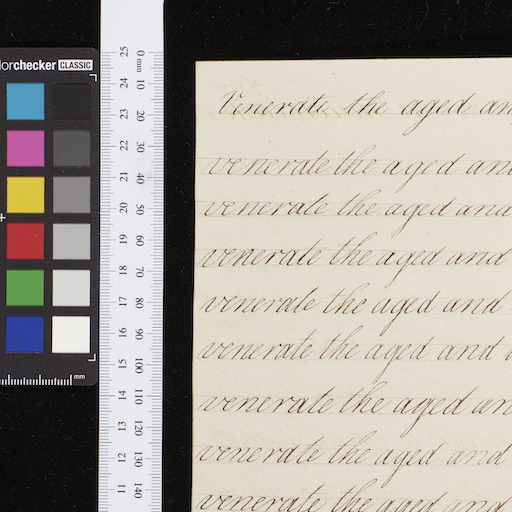 colorchecker CLASSIC
mm
25 24 23 22 21 20 19 18 17 16 15 14 13 12 11
0 mm 10 20 30 40 50 60 70 80 90 100 110 120 130 140
Venerate the aged an
venerate the aged and
venerate the aged and
venerate the aged and
venerate the aged and
venerate the aged and
venerate the aged an
venerate the aged and
venerate the aged and